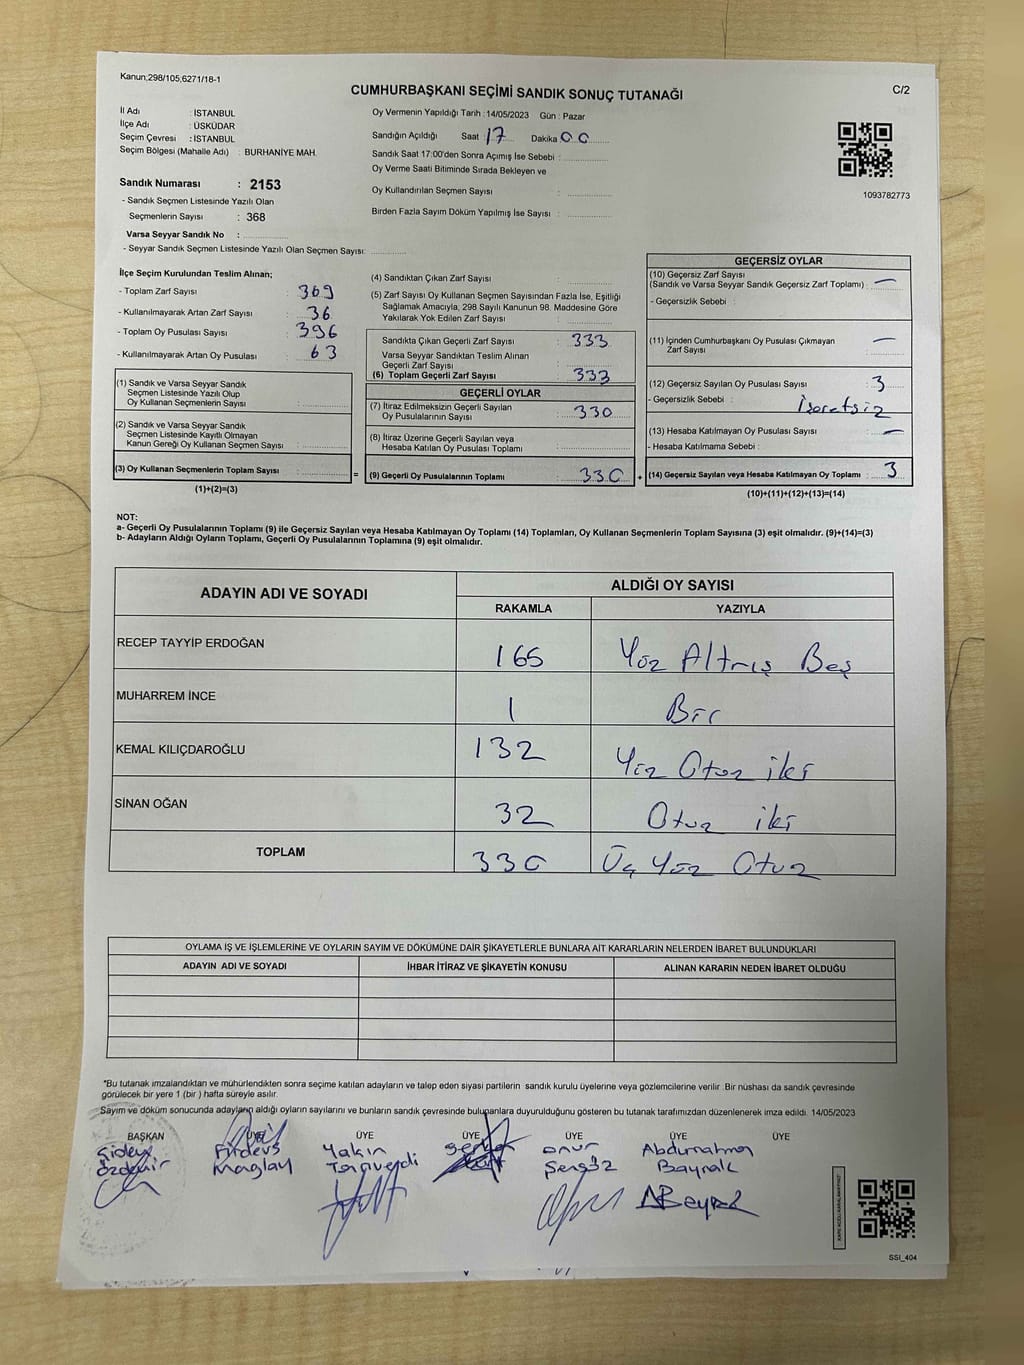 Kanun;298/105,6271/18-1
CUMHURBAŞKANI SEÇİMİ SANDIK SONUÇ TUTANAĞI
C/2
İl Adı : İSTANBUL
İlçe Adı : ÜSKÜDAR
Seçim Çevresi : İSTANBUL
Seçim Bölgesi (Mahalle Adı) : BURHANİYE MAH.
Oy Vermenin Yapıldığı Tarih : 14/05/2023 Gün : Pazar
Sandığın Açıldığı Saat 17 Dakika 00
Sandık Saat 17:00'den Sonra Açımış İse Sebebi :
Oy Verme Saati Bitiminde Sırada Bekleyen ve
Oy Kullandırılan Seçmen Sayısı :
Birden Fazla Sayım Döküm Yapılmış İse Sayısı :
1093782773
Sandık Numarası : 2153
- Sandık Seçmen Listesinde Yazılı Olan
Seçmenlerin Sayısı : 368
Varsa Seyyar Sandık No :
- Seyyar Sandık Seçmen Listesinde Yazılı Olan Seçmen Sayısı:
İlçe Seçim Kurulundan Teslim Alınan;
- Toplam Zarf Sayısı : 369
- Kullanılmayarak Artan Zarf Sayısı : 36
- Toplam Oy Pusulası Sayısı : 396
- Kullanılmayarak Artan Oy Pusulası : 63
(1) Sandık ve Varsa Seyyar Sandık
Seçmen Listesinde Yazılı Olup
Oy Kullanan Seçmenlerin Sayısı :
(2) Sandık ve Varsa Seyyar Sandık
Seçmen Listesinde Kayıtlı Olmayan
Kanun Gereği Oy Kullanan Seçmen Sayısı :
(3) Oy Kullanan Seçmenlerin Toplam Sayısı : =
(1)+(2)=(3)
(4) Sandıktan Çıkan Zarf Sayısı :
(5) Zarf Sayısı Oy Kullanan Seçmen Sayısından Fazla İse, Eşitliği
Sağlamak Amacıyla; 298 Sayılı Kanunun 98. Maddesine Göre
Yakılarak Yok Edilen Zarf Sayısı :
Sandıkta Çıkan Geçerli Zarf Sayısı : 333
Varsa Seyyar Sandıktan Teslim Alınan
Geçerli Zarf Sayısı :
(6) Toplam Geçerli Zarf Sayısı : 333
GEÇERLİ OYLAR
(7) İtiraz Edilmeksizin Geçerli Sayılan
Oy Pusulalarının Sayısı : 330
(8) İtiraz Üzerine Geçerli Sayılan veya
Hesaba Katılan Oy Pusulası Toplamı :
(9) Geçerli Oy Pusulalarının Toplamı : 330 +
GEÇERSİZ OYLAR
(10) Geçersiz Zarf Sayısı
(Sandık ve Varsa Seyyar Sandık Geçersiz Zarf Toplamı) : —
- Geçersizlik Sebebi :
(11) İçinden Cumhurbaşkanı Oy Pusulası Çıkmayan
Zarf Sayısı : —
(12) Geçersiz Sayılan Oy Pusulası Sayısı : 3
- Geçersizlik Sebebi : İşaretsiz
(13) Hesaba Katılmayan Oy Pusulası Sayısı : —
- Hesaba Katılmama Sebebi :
(14) Geçersiz Sayılan veya Hesaba Katılmayan Oy Toplamı : 3
(10)+(11)+(12)+(13)=(14)
NOT:
a- Geçerli Oy Pusulalarının Toplamı (9) ile Geçersiz Sayılan veya Hesaba Katılmayan Oy Toplamı (14) Toplamları, Oy Kullanan Seçmenlerin Toplam Sayısına (3) eşit olmalıdır. (9)+(14)=(3)
b- Adayların Aldığı Oyların Toplamı, Geçerli Oy Pusulalarının Toplamına (9) eşit olmalıdır.
ADAYIN ADI VE SOYADI
ALDIĞI OY SAYISI
RAKAMLA YAZIYLA
RECEP TAYYİP ERDOĞAN 165 Yüz Altmış Beş
MUHARREM İNCE 1 Bir
KEMAL KILIÇDAROĞLU 132 Yüz Otuz iki
SİNAN OĞAN 32 Otuz iki
TOPLAM 330 Üç Yüz Otuz
OYLAMA İŞ VE İŞLEMLERİNE VE OYLARIN SAYIM VE DÖKÜMÜNE DAİR ŞİKAYETLERLE BUNLARA AİT KARARLARIN NELERDEN İBARET BULUNDUKLARI
ADAYIN ADI VE SOYADI İHBAR İTİRAZ VE ŞİKAYETİN KONUSU ALINAN KARARIN NEDEN İBARET OLDUĞU
*Bu tutanak imzalandıktan ve mühürlendikten sonra seçime katılan adayların ve talep eden siyasi partilerin sandık kurulu üyelerine veya gözlemcilerine verilir .Bir nüshası da sandık çevresinde
görülecek bir yere 1 (bir ) hafta süreyle asılır.
Sayım ve döküm sonucunda adayların aldığı oyların sayılarını ve bunların sandık çevresinde bulunanlara duyurulduğunu gösteren bu tutanak tarafımızdan düzenlenerek imza edildi. 14/05/2023
BAŞKAN ÜYE ÜYE ÜYE ÜYE ÜYE ÜYE
Firdevs Yakın Onur Abdurrahman
Özdemir Maglay Tanrıverdi Şengöz Bayrak
SSI_404